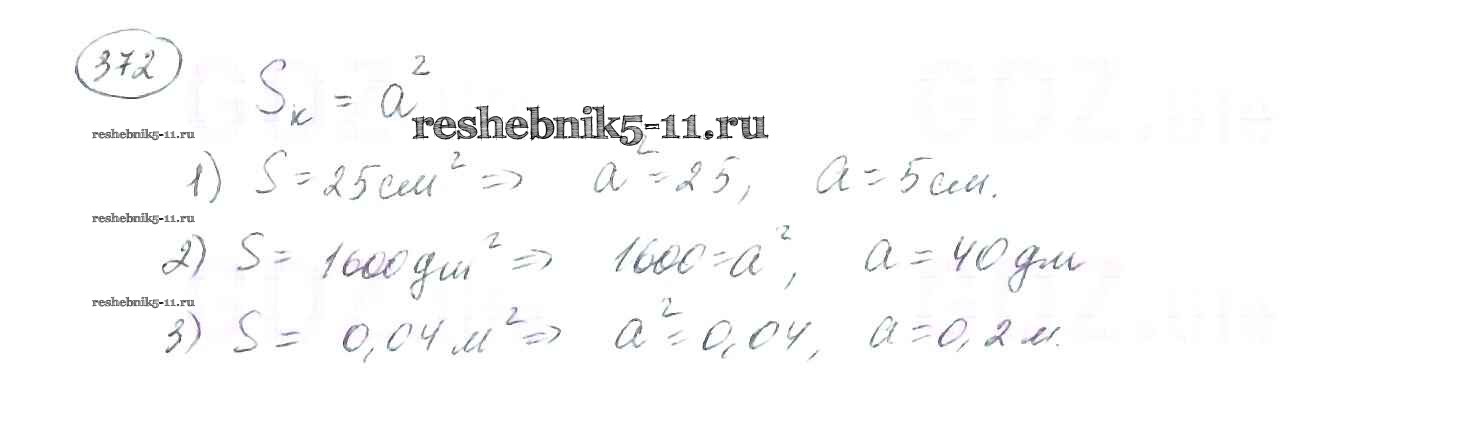 372
Sк = a²
reshebnik5-11.ru
reshebnik5-11.ru
1) S = 25см² => a² = 25, a = 5см.
reshebnik5-11.ru
2) S = 1600дм² => 1600 = a², a = 40дм
reshebnik5-11.ru
3) S = 0,04м² => a² = 0,04, a = 0,2м.